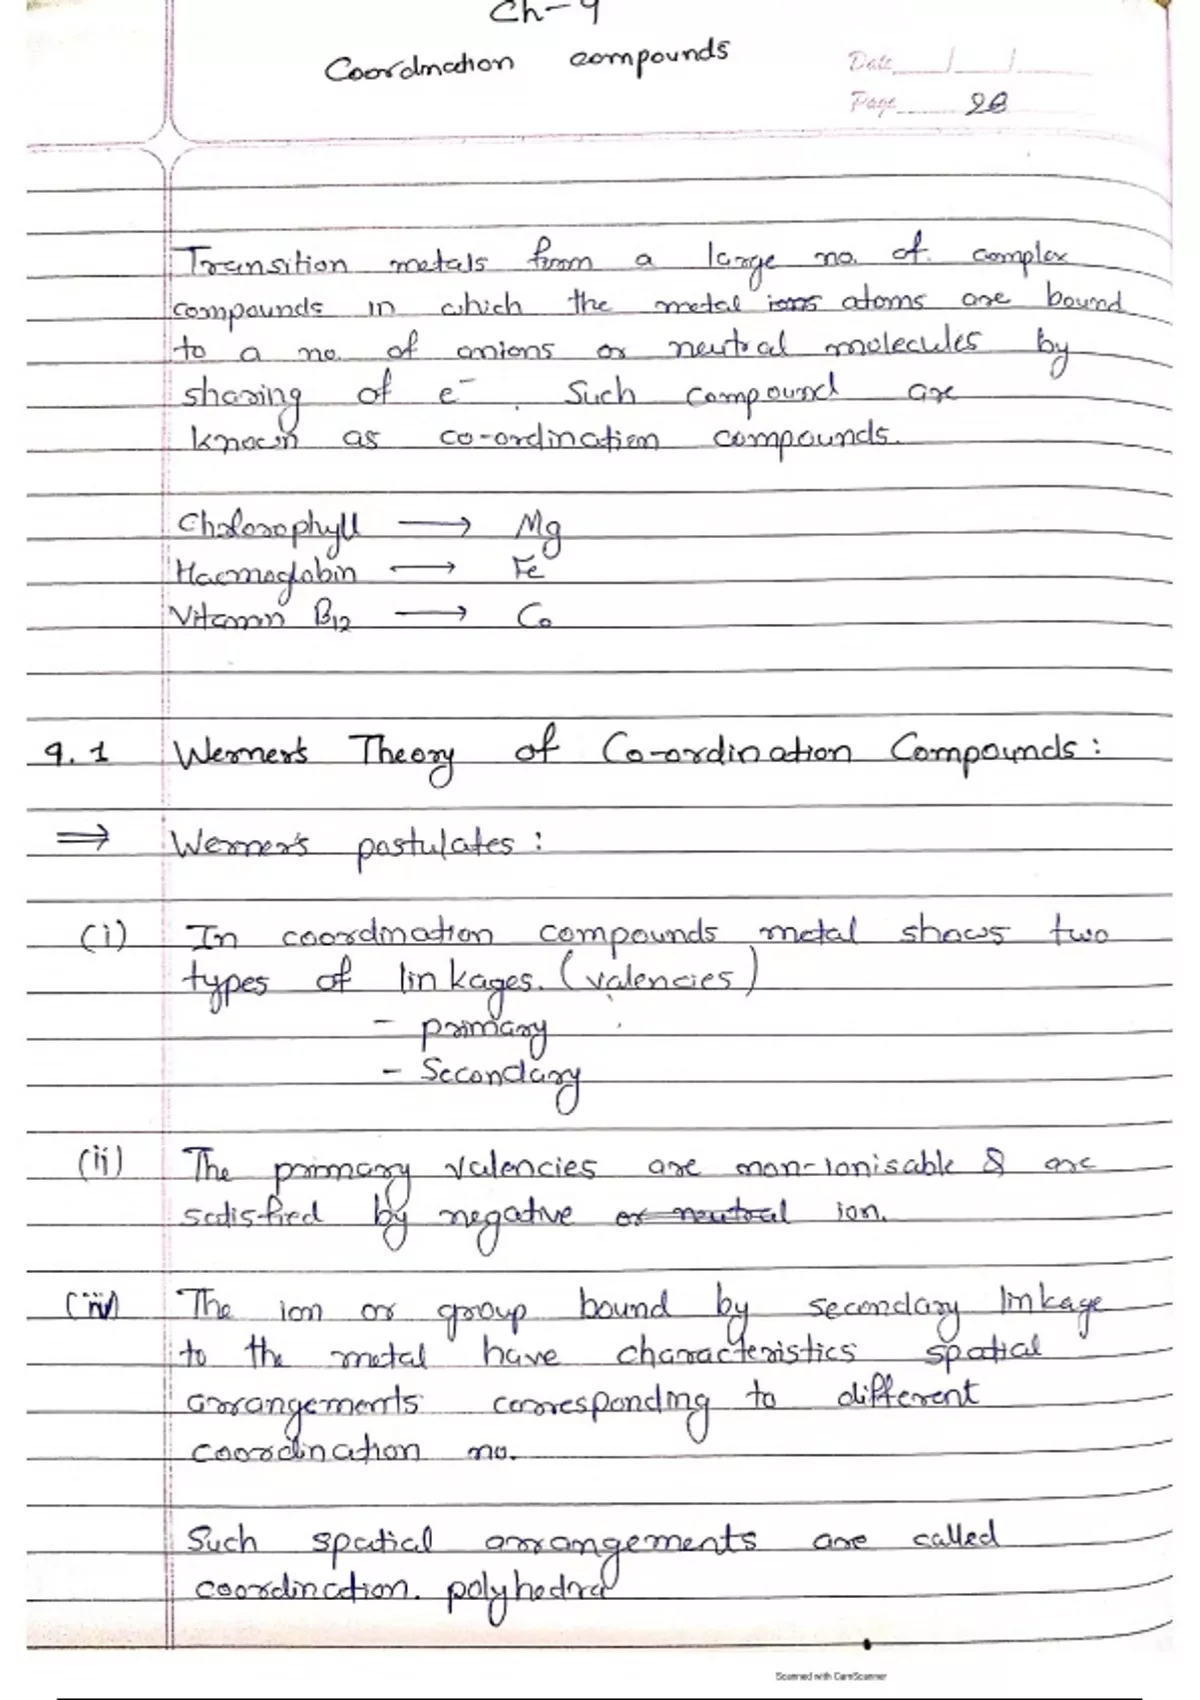 Ch-9
Coordination compounds
Date / /
Page 28
Transition metals form a large no. of complex
compounds in which the metal ions atoms are bound
to a no. of anions or neutral molecules by
sharing of e⁻. Such compound are
known as co-ordination compounds.
Cholorophyll → Mg
Haemoglobin → Fe
Vitamin B12 → Co
9.1 Werner's Theory of Co-ordination Compounds:
⇒ Werner's postulates:
(i) In coordination compounds metal shows two
types of linkages. (valencies)
- primary
- Secondary
(ii) The primary valencies are non-ionisable & are
satisfied by negative or neutral ion.
(iii) The ion or group bound by secondary linkage
to the metal have characteristics spatial
arrangements corresponding to different
coordination no.
Such spatial arrangements are called
coordination. polyhedra
Scanned with CamScanner